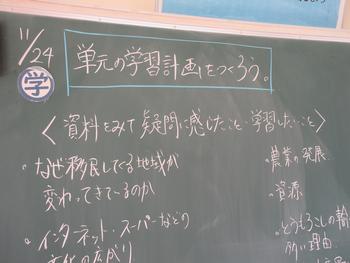 11/24
学
単元の学習計画をつくろう。
〈資料をみて疑問に感じたこと・学習したいこと〉
・なぜ移民してくる地域が
変わってきているのか
・インターネット・スーパーなどの
文化の広がり
・農業の発展
・資源
・とうもろこしの輸
多い理由